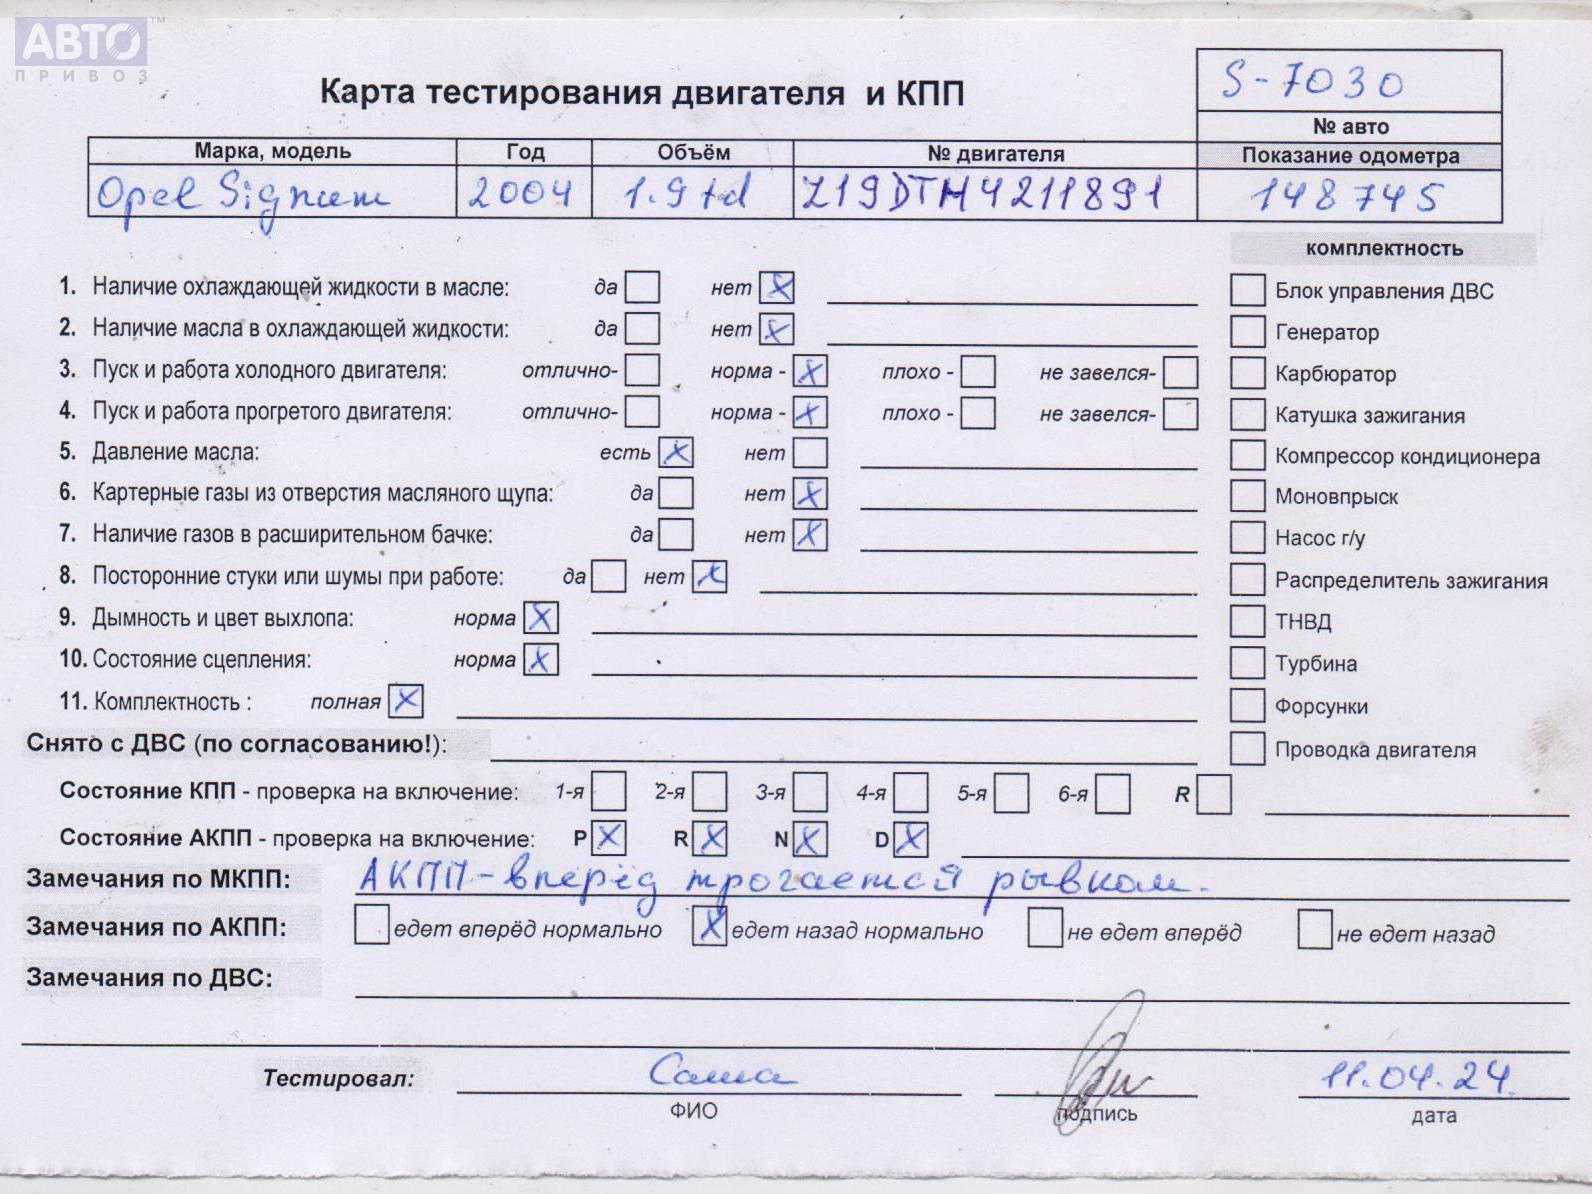 АВТО™
ПРИВОЗ
Карта тестирования двигателя и КПП
S-7030
№ авто
Марка, модель Год Объём № двигателя Показание одометра
Opel Signum 2004 1.9 td Z19DTH4211891 148745
комплектность
1. Наличие охлаждающей жидкости в масле: да нет X Блок управления ДВС
2. Наличие масла в охлаждающей жидкости: да нет X Генератор
3. Пуск и работа холодного двигателя: отлично- норма - X плохо - не завелся- Карбюратор
4. Пуск и работа прогретого двигателя: отлично- норма - X плохо - не завелся- Катушка зажигания
5. Давление масла: есть X нет Компрессор кондиционера
6. Картерные газы из отверстия масляного щупа: да нет X Моновпрыск
7. Наличие газов в расширительном бачке: да нет X Насос г/у
8. Посторонние стуки или шумы при работе: да нет X Распределитель зажигания
9. Дымность и цвет выхлопа: норма X ТНВД
10. Состояние сцепления: норма X Турбина
11. Комплектность : полная X Форсунки
Снято с ДВС (по согласованию!): Проводка двигателя
Состояние КПП - проверка на включение: 1-я 2-я 3-я 4-я 5-я 6-я R
Состояние АКПП - проверка на включение: P X R X N X D X
Замечания по МКПП: АКПП - вперёд трогается рывком.
Замечания по АКПП: едет вперёд нормально X едет назад нормально не едет вперёд не едет назад
Замечания по ДВС:
Тестировал: Саша 11.04.24.
ФИО подпись дата